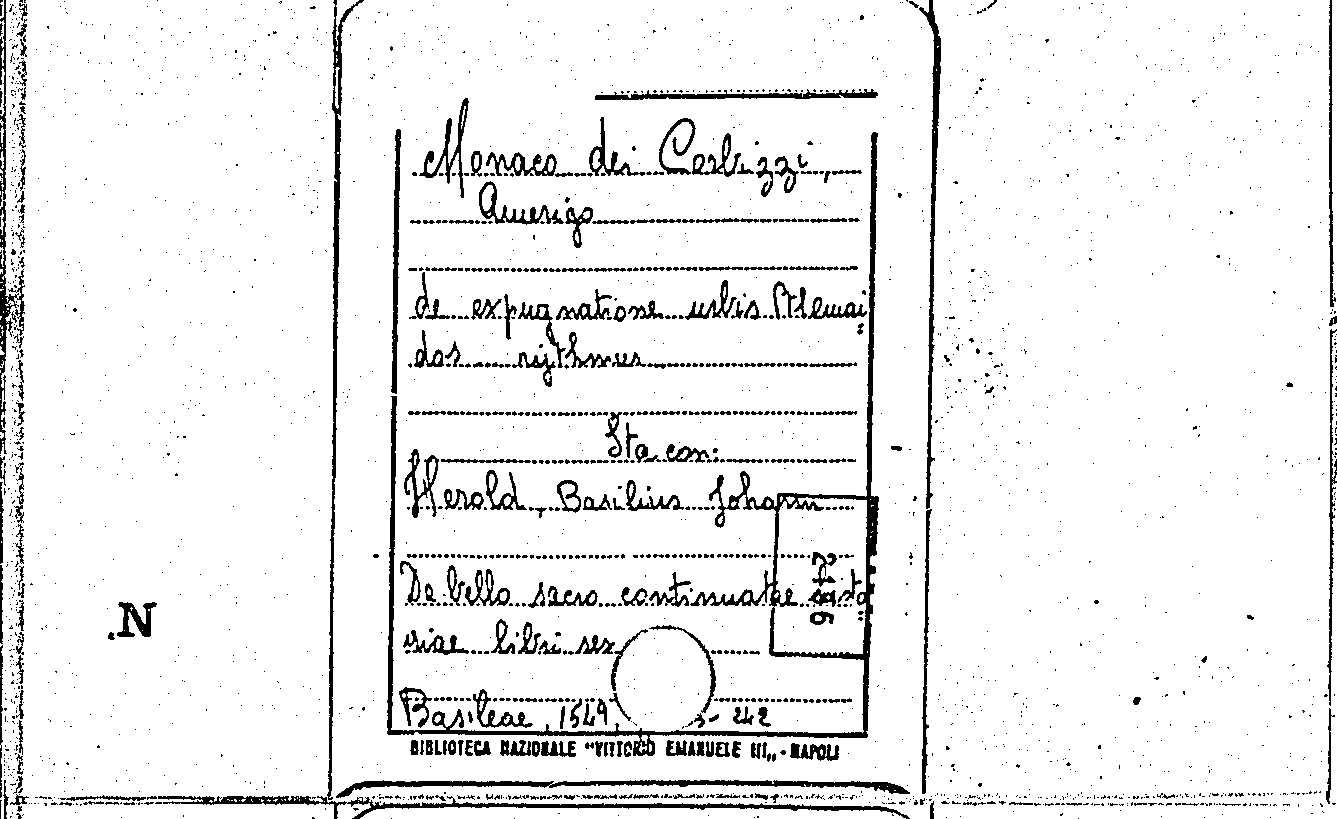 Monaco dei Corbizzi,
Amerigo
de expugnatione urbis Ptlemai
dos rijthmus
Sta con:
Herold, Basilius Johann
De bello sacro continuatae histo
riae libri sex
Basileae, 1549, 3-242
BIBLIOTECA NAZIONALE "VITTORIO EMANUELE III„ - NAPOLI
N.